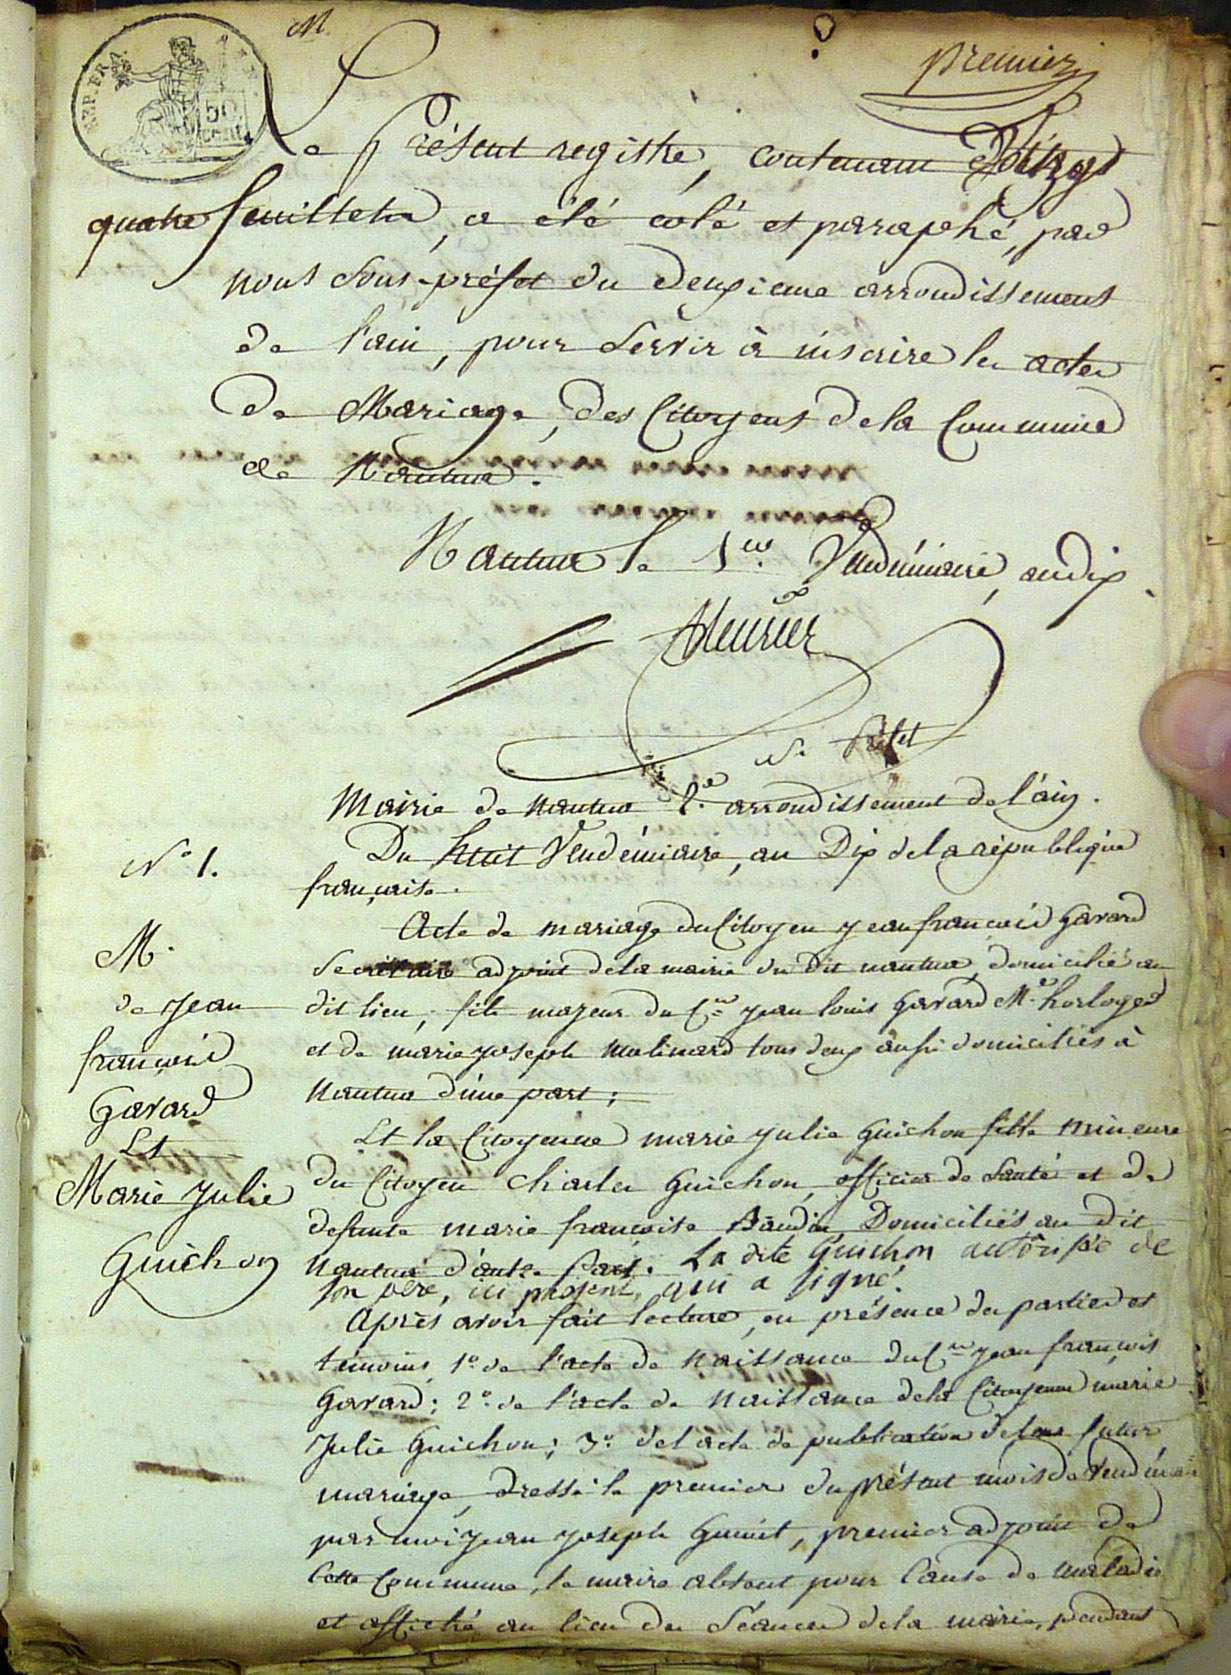 REP. FRA.
50 cent.
M.
premier
Le Présent registre, contenant
quatre feuillets, a été coté et paraphé, par
nous Sous-préfet du deuxieme arrondissement
de l'ain, pour servir à inscrire les actes
de Mariage, des Citoyens de la Commune
de Nantua.
Nantua le 1er. Vendémiaire, an dix
S. Préfet
Mairie de nantua 2.e arrondissement de l'ain.
Du huit Vendémiaire, an Dix de la république
française.
N.o 1.
M.
de jean
françois
Gavard
Et
Marie Julie
Guichon
Acte de mariage du Citoyen jean françois Gavard
Secrétaire adjoint de la mairie du dit nantua, domicilié au
dit lieu, fils majeur du C.en jean louis Gavard M.e horloger
et de marie joseph Molinard tous deux aussi domiciliés à
Nantua d'une part;
Et la Citoyenne marie julie Guichon fille mineure
du Citoyen Charles Guichon, officier de Santé et de
defunte marie françoise Baudin, Domiciliés au dit
Nantua d'autre part. La dite Guichon autorisée de
son père, ici présent, qui a signé.
Après avoir fait lecture, en présence des parties et
témoins, 1.o de l'acte de Naissance du C.en jean françois
Gavard; 2.o de l'acte de Naissance de la Citoyenne marie
Julie Guichon; 3.o de l'acte de publication de leur futur
mariage, dressé le premier du présent mois de Vendémiaire
par moi jean joseph, premier adjoint de
Cette Commune, le maire absent pour Cause de maladie
et affiché au lieu des Séances de la mairie, pendant